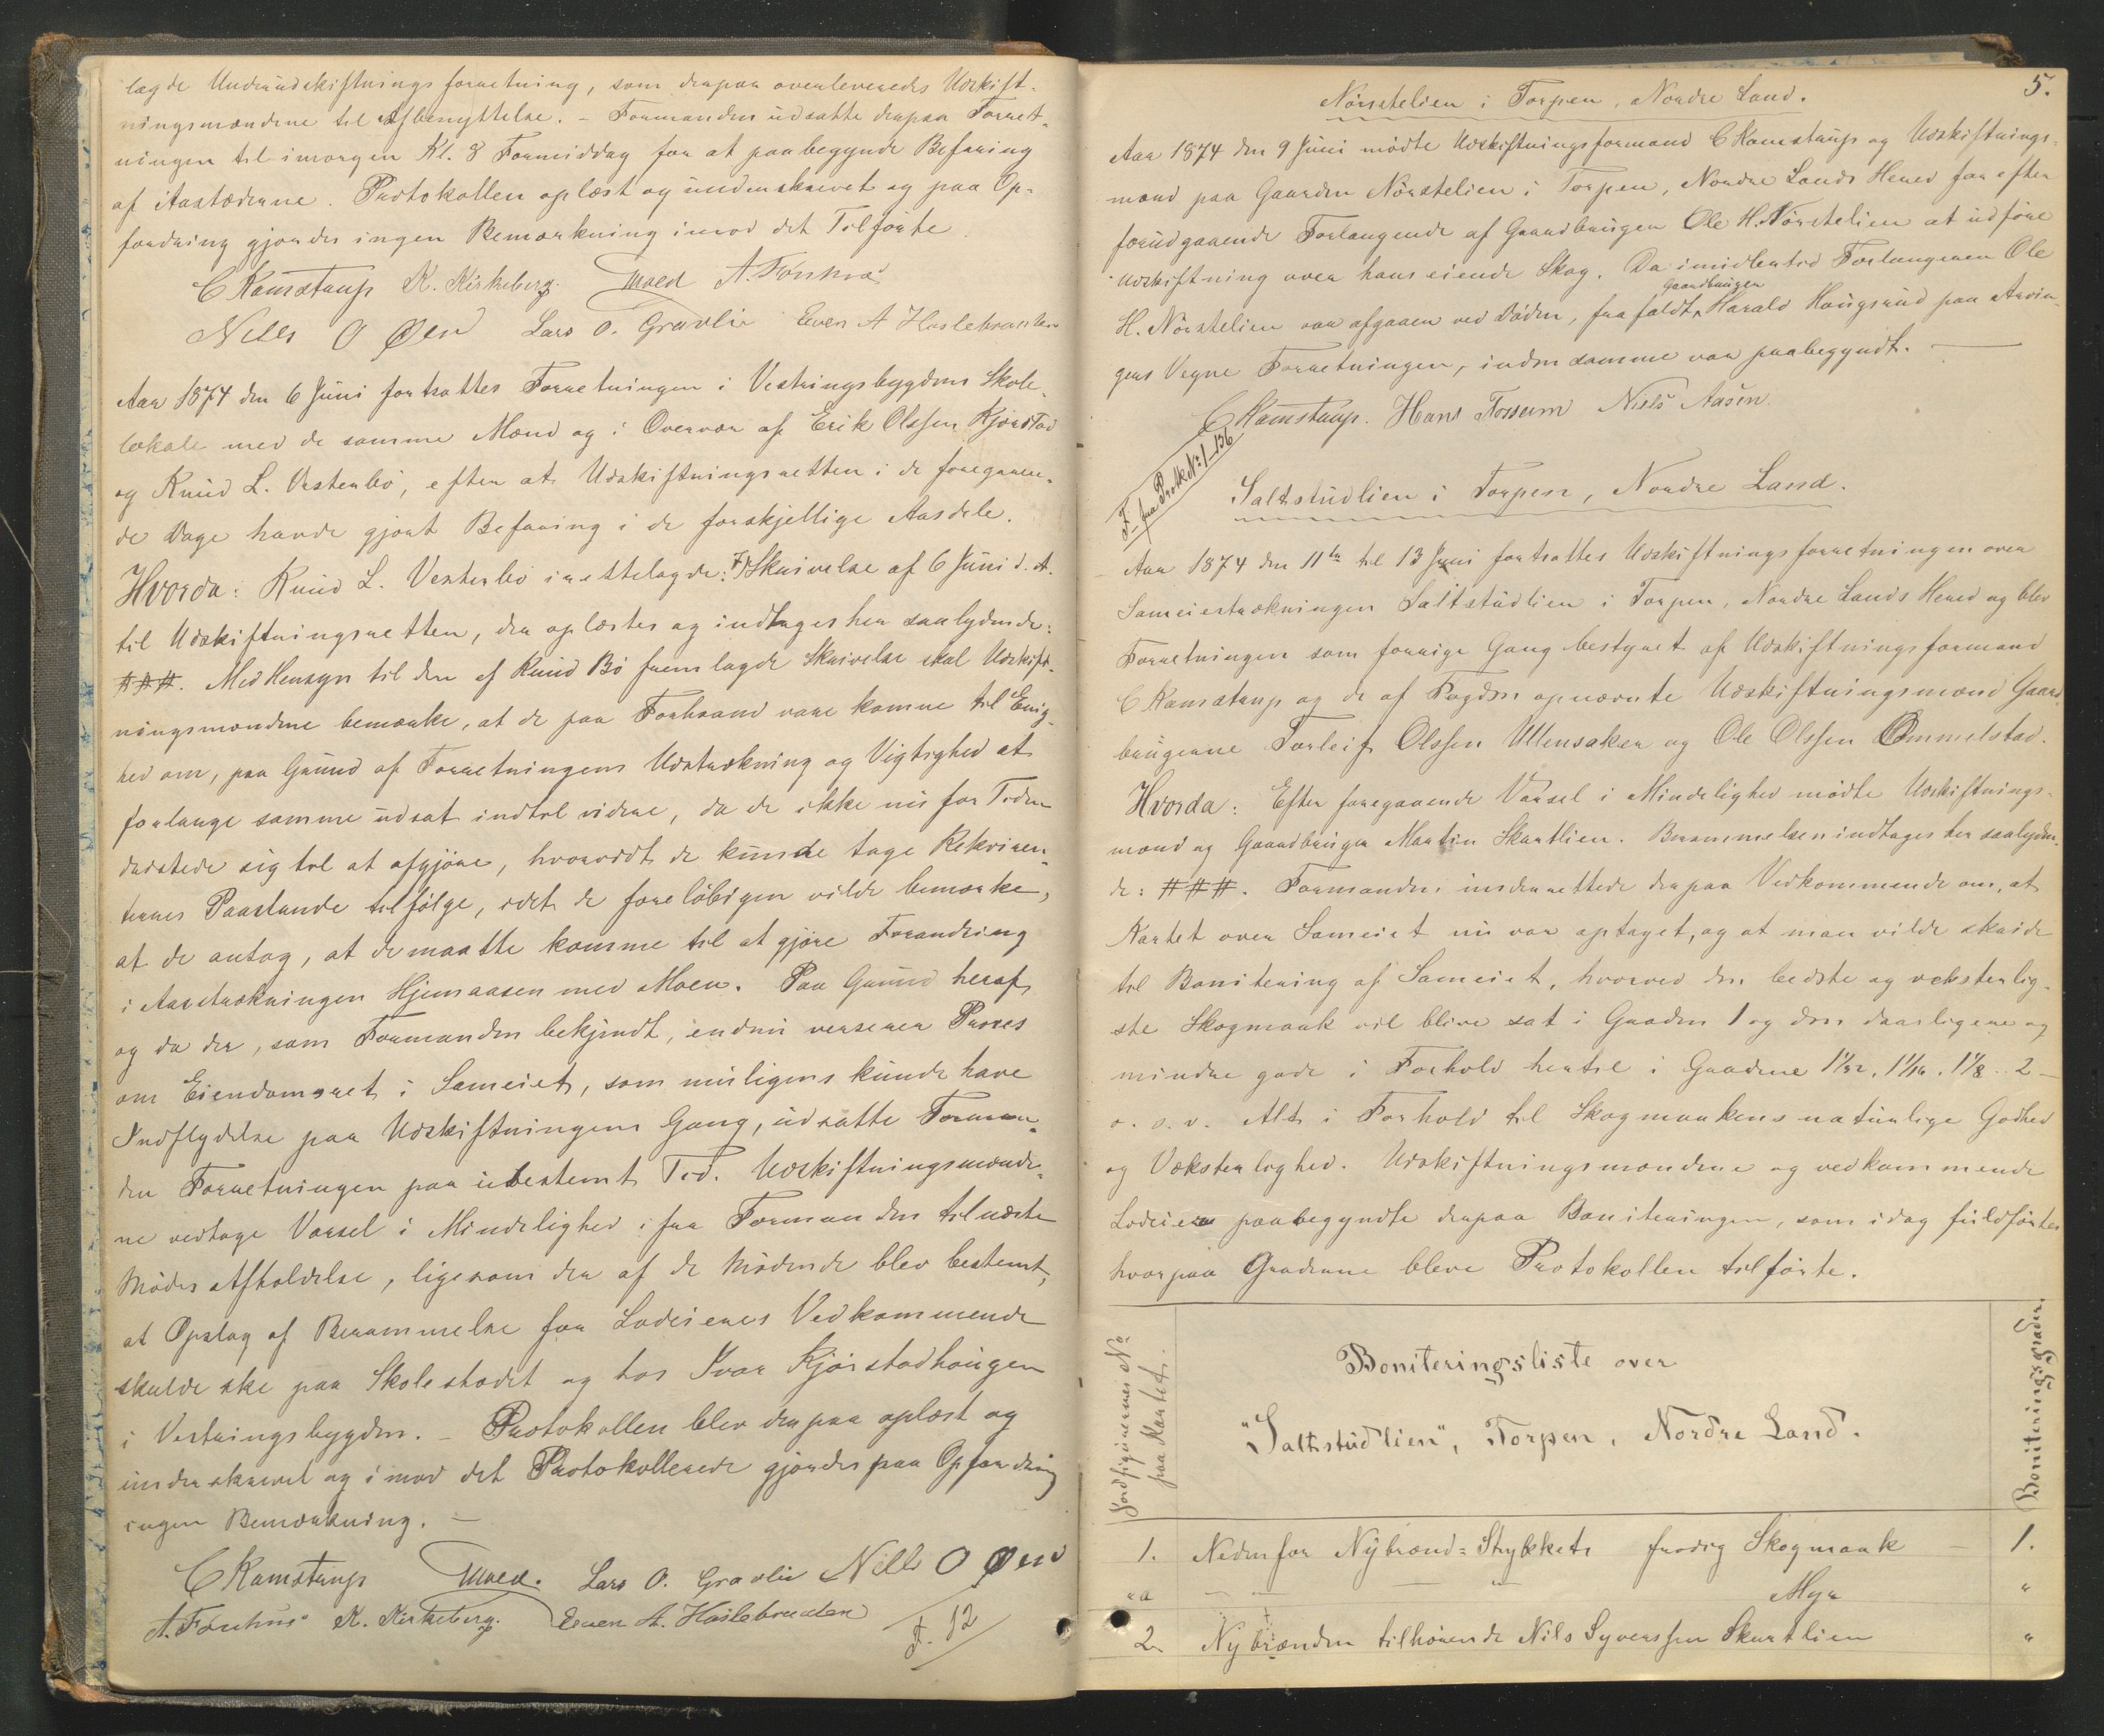 lagde Underudskiftningsforretning, som derpaa overleveredes Udskift-
ningsmændene til Afbenyttelse. – Formanden udsatte derpaa Forret-
ningen til imorgen Kl. 8 Formiddag for at paabegynde Befaring
af Aastæderne. Protokollen oplæst og underskrevet og paa Op-
fordring gjordes ingen Bemærkning imod det Tilførte.
C Ramstrup K. Kirkeberg. Moen A. Fonhus
Nells O Øen Lars O. Gravlie Even A Haslebraaten
Aar 1874 den 6 Juni fortsattes Forretningen i Vestringsbygdens Skole-
lokale med de samme Mænd og i Overvær af Erik Olssen Kjørstad
og Knud L. Vestenbø, efter at Udskiftningsretten i de foregaaen-
de Dage havde gjort Befaring i de forskjellige Aasdele.
Hvorda: Knud L. Vestenbø irettelagde: F) Skrivelse af 6 Juni d. A.
til Udskiftningsretten, der oplæstes og indtages her saalydende:
###. Med Hensyn til den af Knud Bø fremlagde Skrivelse skal Udskift-
ningsmændene bemærke, at de paa Forhaand vare komne til Enig-
hed om, paa Grund af Forretningens Udstrækning og Vigtighed at
forlange samme udsat indtil videre, da de ikke nu for Tiden
dristede sig til at afgjøre, hvorvidt de kunde tage Rekviren-
ternes Paastande tilfølge, idet de foreløbigen vilde bemærke,
at de antog, at de maatte komme til at gjøre Forandring
i Aasstrækningen Hjemaasen med Moen. Paa Grund heraf
og da der, som Formanden bekjendt, endnu verserer Proces
om Eiendomsret i Sameiet, som muligens kunde have
Indflydelse paa Udskiftningens Gang, udsatte Forman-
den Forretningen paa ubestemt Tid. Udskiftningsmænde-
ne vedtage Varsel i Mindelighed ifra Formanden til næste
Mødes Afholdelse, ligesom der af de Mødende blev bestemt,
at Opslag af Berammelse for Lodeieres Vedkommende
skulde ske paa Skolestadet og hos Ivar Kjørstadhaugen
i Vestringsbygden. – Protokollen blev derpaa oplæst og
underskrevet og imod det Protokollerede gjordes paa Opfordring
ingen Bemærkning. –
C Ramstrup Moen. Lars O. Gravlie Nells O Øen
A. Fonhus K. Kirkeberg. Even A. Haslebraaten
F. 12
5.
Nørstelien i Torpen, Nordre Land.
Aar 1874 den 9 Juni mødte Udskiftningsformand C Ramstrup og Udskiftnings-
mænd paa Gaarden Nørstelien i Torpen, Nordre Lands Hered for efter
forudgaaende Forlangende af Gaardbruger Ole H. Nørstelien at udføre
Udskiftning over hans eiende Skog. Da imidlertid Forlangeren Ole
H. Nørstelien var afgaaen ved Døden, frafaldt Gaardbruger Harald Haugsrud paa Arvin-
gers Vegne Forretningen, inden samme var paabegyndt. –
C Ramstrup. Hans Fossum Niels Aasen
F. fra Protk No 1–136
Saltstudlien i Torpen, Nordre Land.
Aar 1874 den 11te til 13 Juni fortsattes Udskiftningsforretningen over
Sameiestrækningen Saltstudlien i Torpen, Nordre Lands Hered og blev
Forretningen som forrige Gang bestyret af Udskiftningsformand
C Ramstrup og de af Fogden opnævnte Udskiftningsmænd Gaard-
brugerne Torleif Olssen Ullensaker og Ole Olssen Ommelstad.
Hvorda: Efter foregaaende Varsel i Mindelighed mødte Udskiftnings-
mænd og Gaardbruger Martin Skartlien. Berammelsen indtages her saalyden-
de: ###. Formanden underrettede derpaa Vedkommende om, at
Kartet over Sameiet nu var optaget, og at man vilde skride
til Bonitering af Sameiet, hvorved den bedste og veksterlig-
ste Skogmark vil blive sat i Graden 1 og den daarligere og
mindre gode i Forhold hertil i Graderne 1 1/32. 1 1/16. 1 1/8 .. 2 –
o. s. v. Alt i Forhold til Skogmarkens naturlige Godhed
og Væksterlighed. Udskiftningsmændene og vedkommende
Lodeiere paabegyndte derpaa Boniteringen, som idag fuldførtes
hvorpaa Graderne bleve Protokollen tilførte.
Jordfigurernes No paa Kartet.
Boniteringsliste over
"Saltstudlien", Torpen, Nordre Land.
Boniteringsgrader.
1. Nedenfor Nybrænd-Stykket frodig Skogmark – 1.
"a – " – " Myr "
2 Nybrænden tilhørende Nils Syverssen Skartlien "